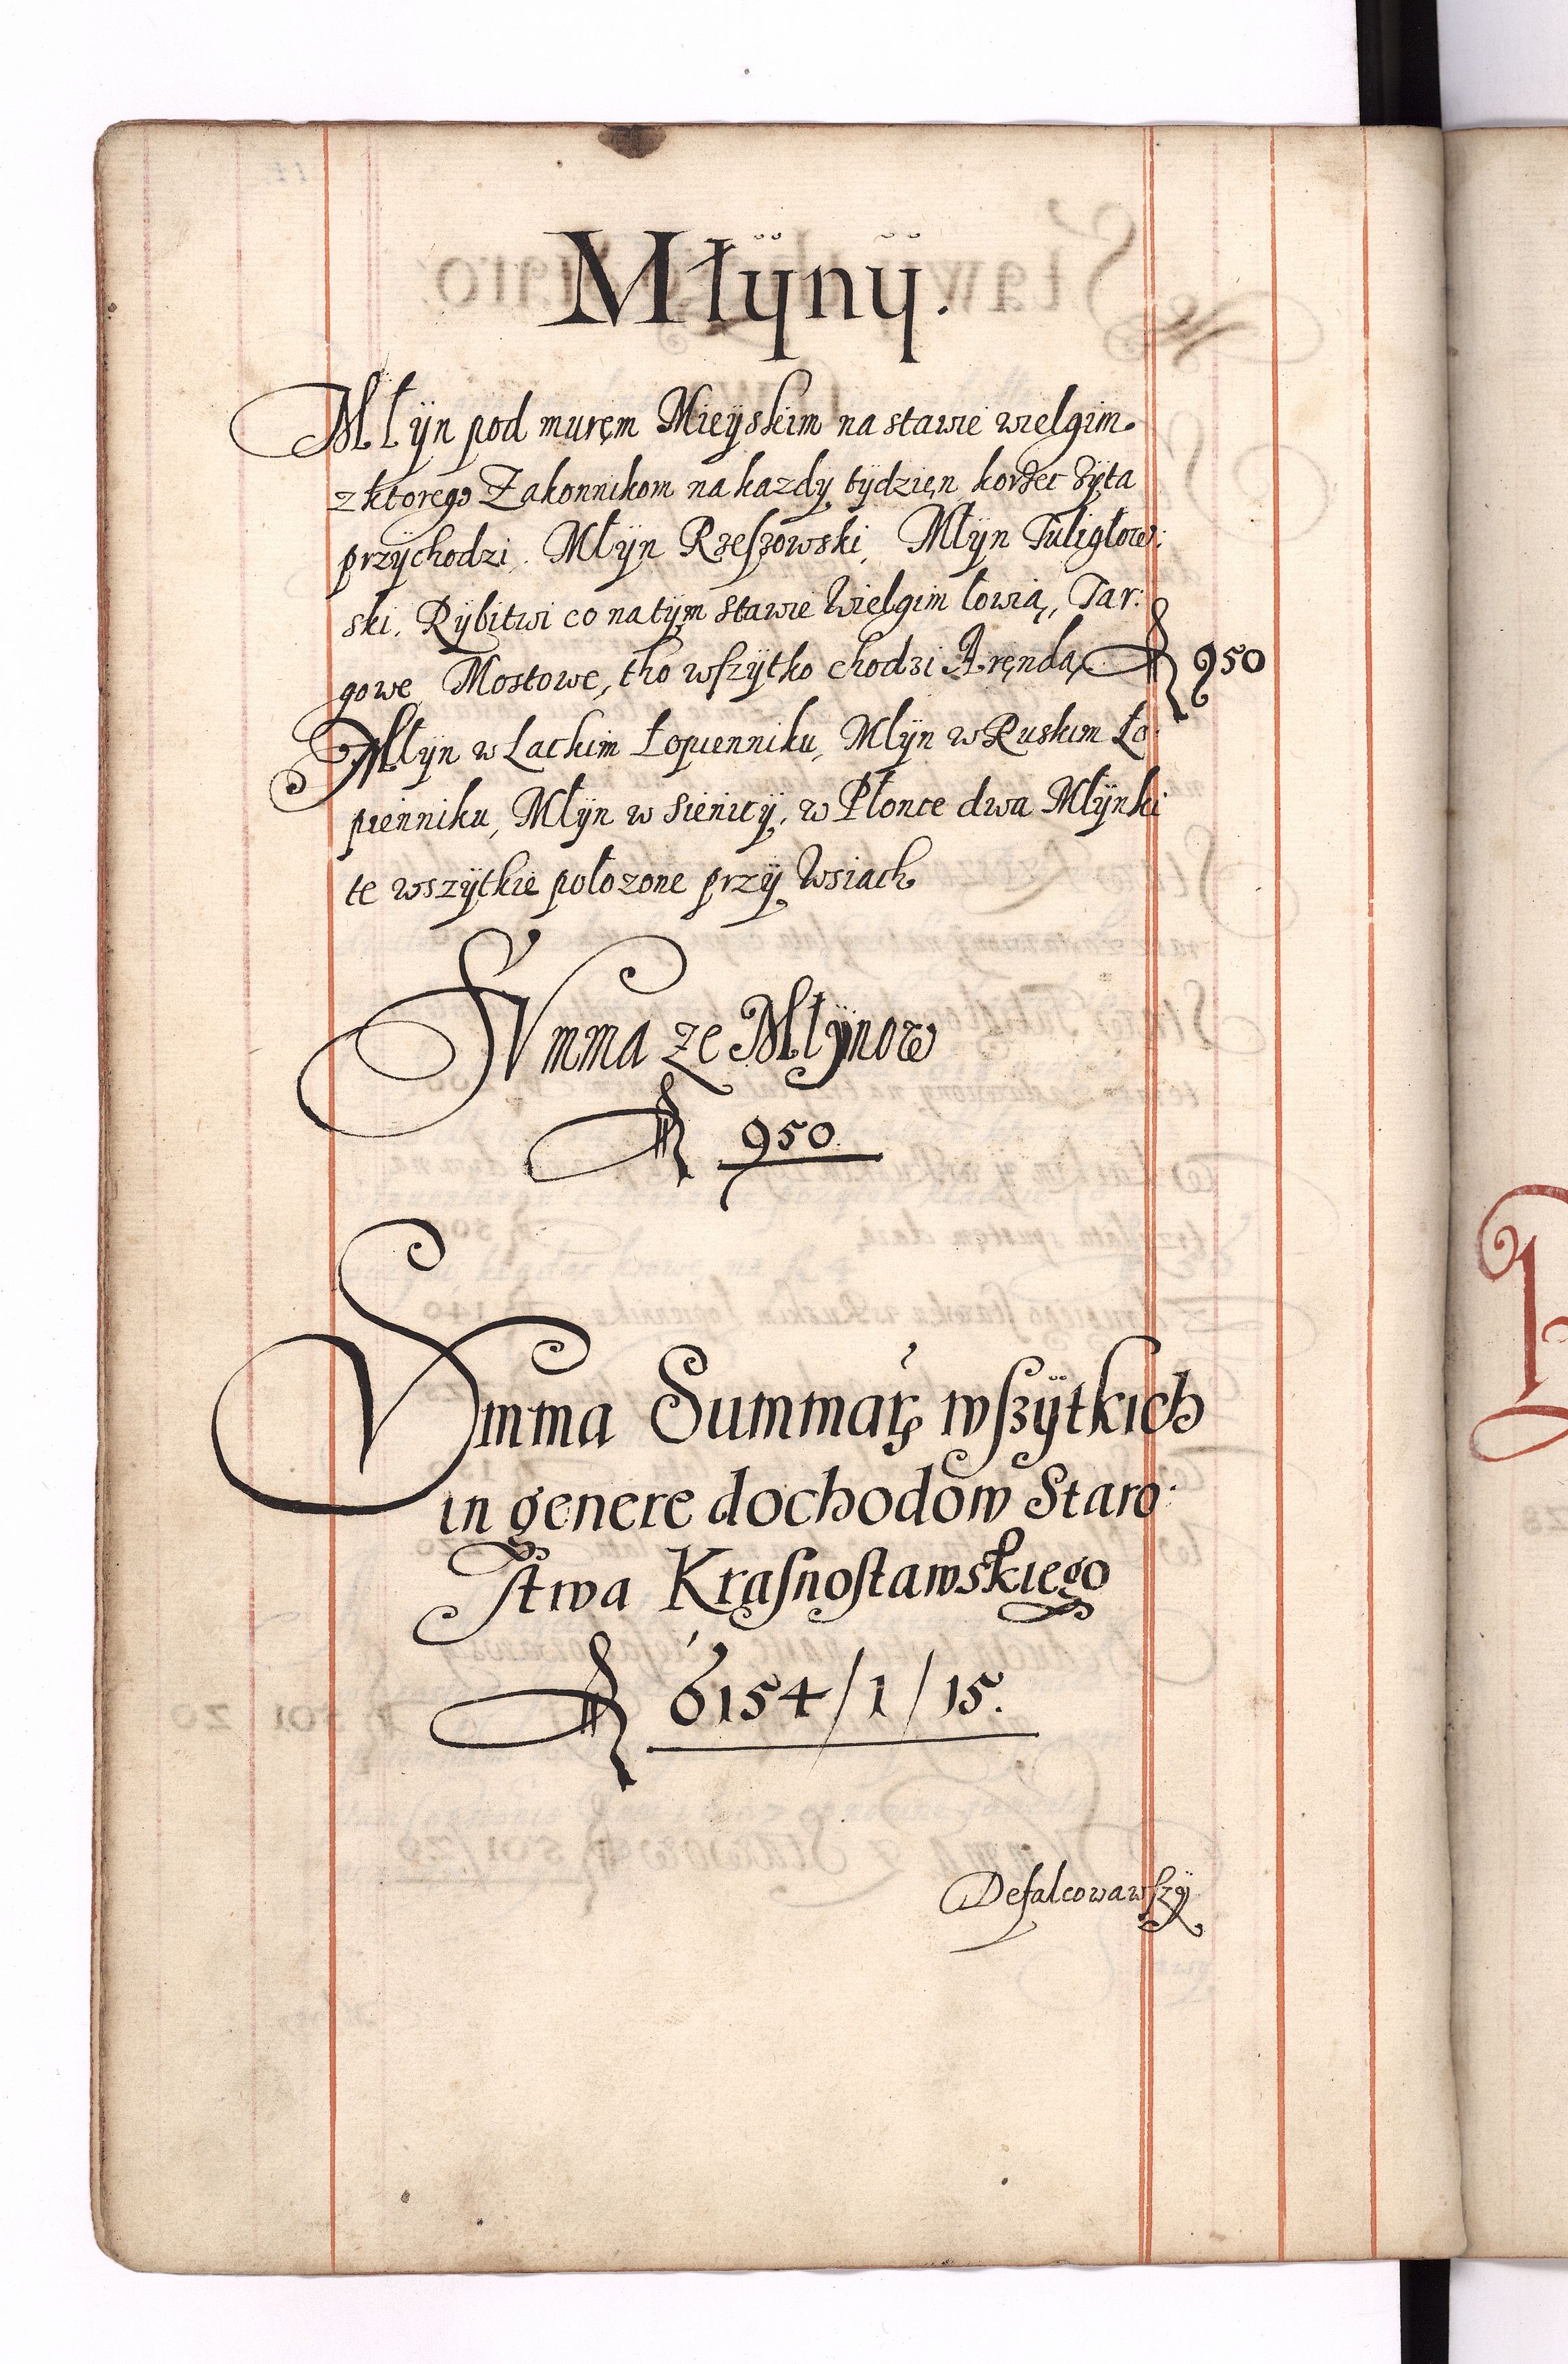 Młÿnÿ.
Młÿn pod muręm Mieÿskim na stawie wielgim
z ktorego Zakonnikom na kazdy tÿdzięn korzec zÿta
przÿchodzi, Młÿn Rzeſzowski, Młÿn Tuligłow:
ski, Rÿbitwi co na tÿm stawie Wielgim łowią, Tar:
gowe Mostowe, tho wſzÿtko chodzi Aręndą fl 950
Młÿn w Lackim Łopienniku, Młÿn w Ruskim Ło:
pienniku, Młÿn w Sienicÿ, w Płonce dwa Młÿnki
te wszÿtkie położone przÿ Wsiach
SVmma ze Młÿnow
fl 950.
SVmma Summarz wſzÿtkich
in genere dochodow Staro:
ſtwa Kraſnoſtawskiego
fl 6154/1/15.
Defalcowawſzÿ